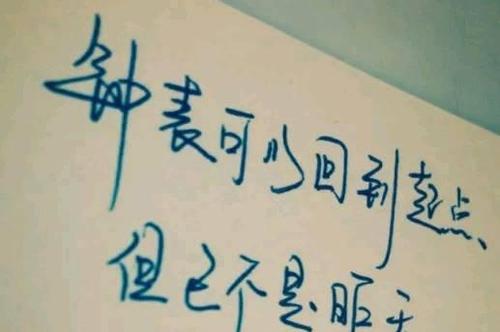 钟表可以回到起点、
但已不是昨天